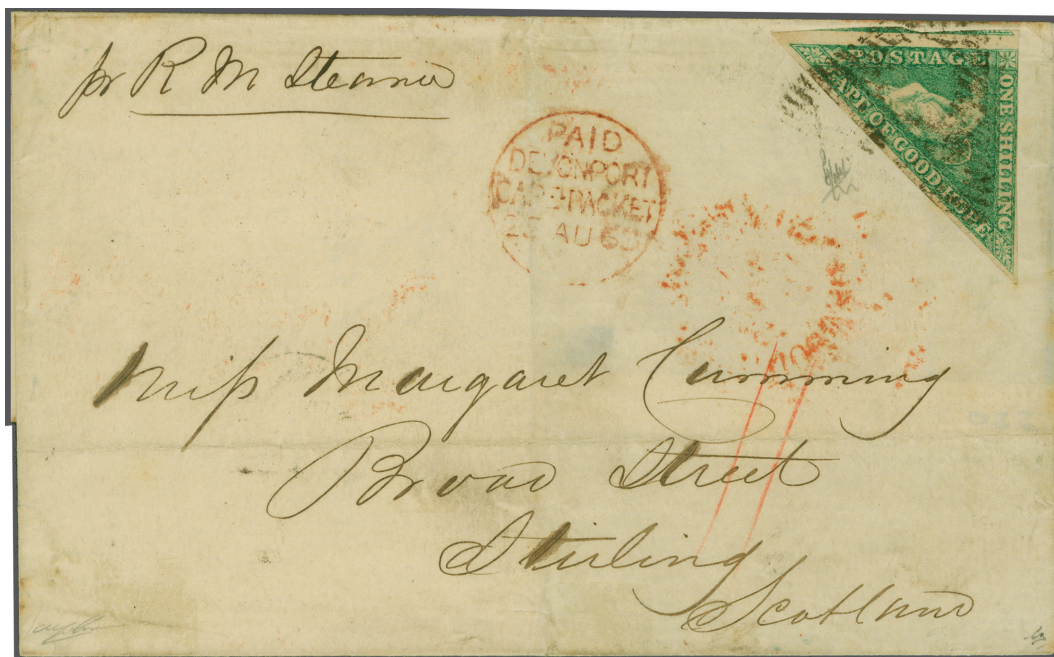 pr R M Steamer
POSTAGE
CAPE OF GOOD HOPE
ONE SHILLING
PAID
DEVONPORT
CAPE PACKET
AU 60
Miss Margaret Cumming
Broad Street
Stirling
Scotland